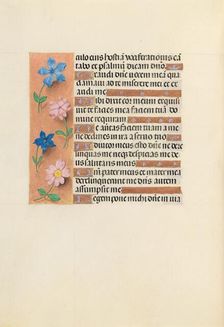 culo eius hostiam vociferationis can
tabo et psalmum dicam dno.
Exaudi dne vocem mea qua
clamavi ad te miserere mei et ex
audi me
Tibi dixit cor meum exquisi
vit te facies mea faciem tua do
mine requiram
Ne avertas faciem tuam a me
ne declines in ira a servo tuo
Adiutor meus esto dne ne dere
linquas me neqz despicias me de
us salutaris meus
Qm pater meus et mater mea
dereliquerunt me dns autem
assumpsit me
Legem pone michi dne in via